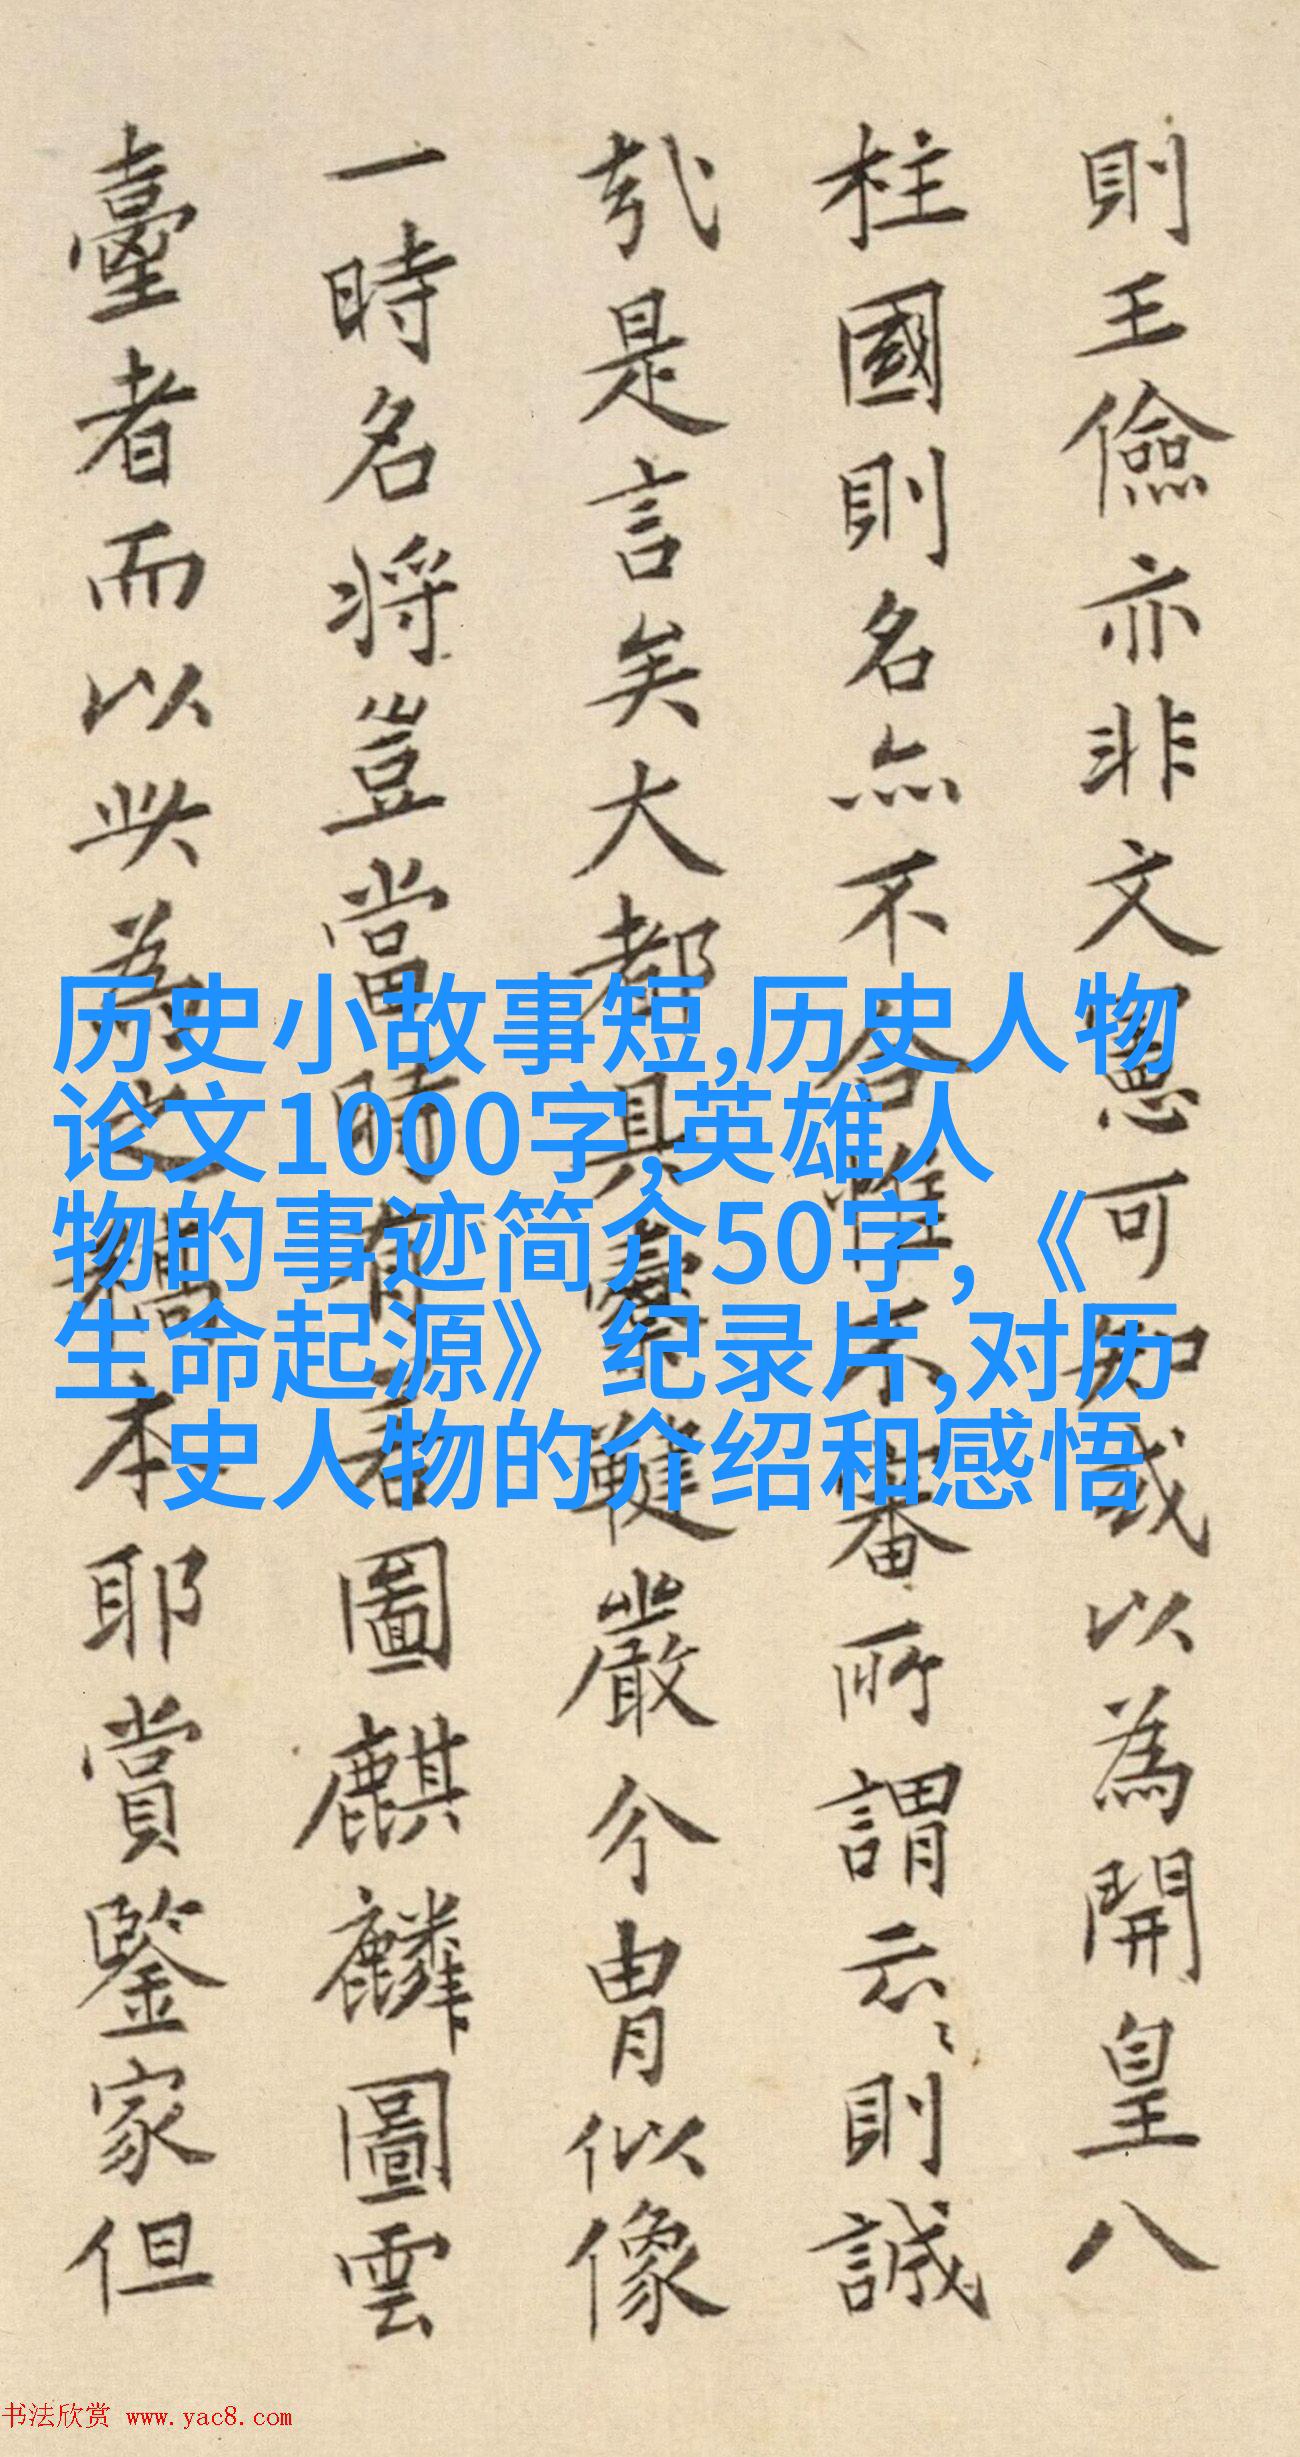 則王儉亦非文憲可知或以為開皇八
柱國則名亦不合惟不審所謂云〻則誠
哉是言矣大都具櫜鞬嚴介冑似像
一時名將豈當時有圖麒麟圖雲
臺者而以此為之稿本耶賞鑒家但
历史小故事短,历史人物
论文1000字,英雄人
物的事迹简介50字,《
生命起源》纪录片,对历
史人物的介绍和感悟
书法欣赏 www.yac8.com